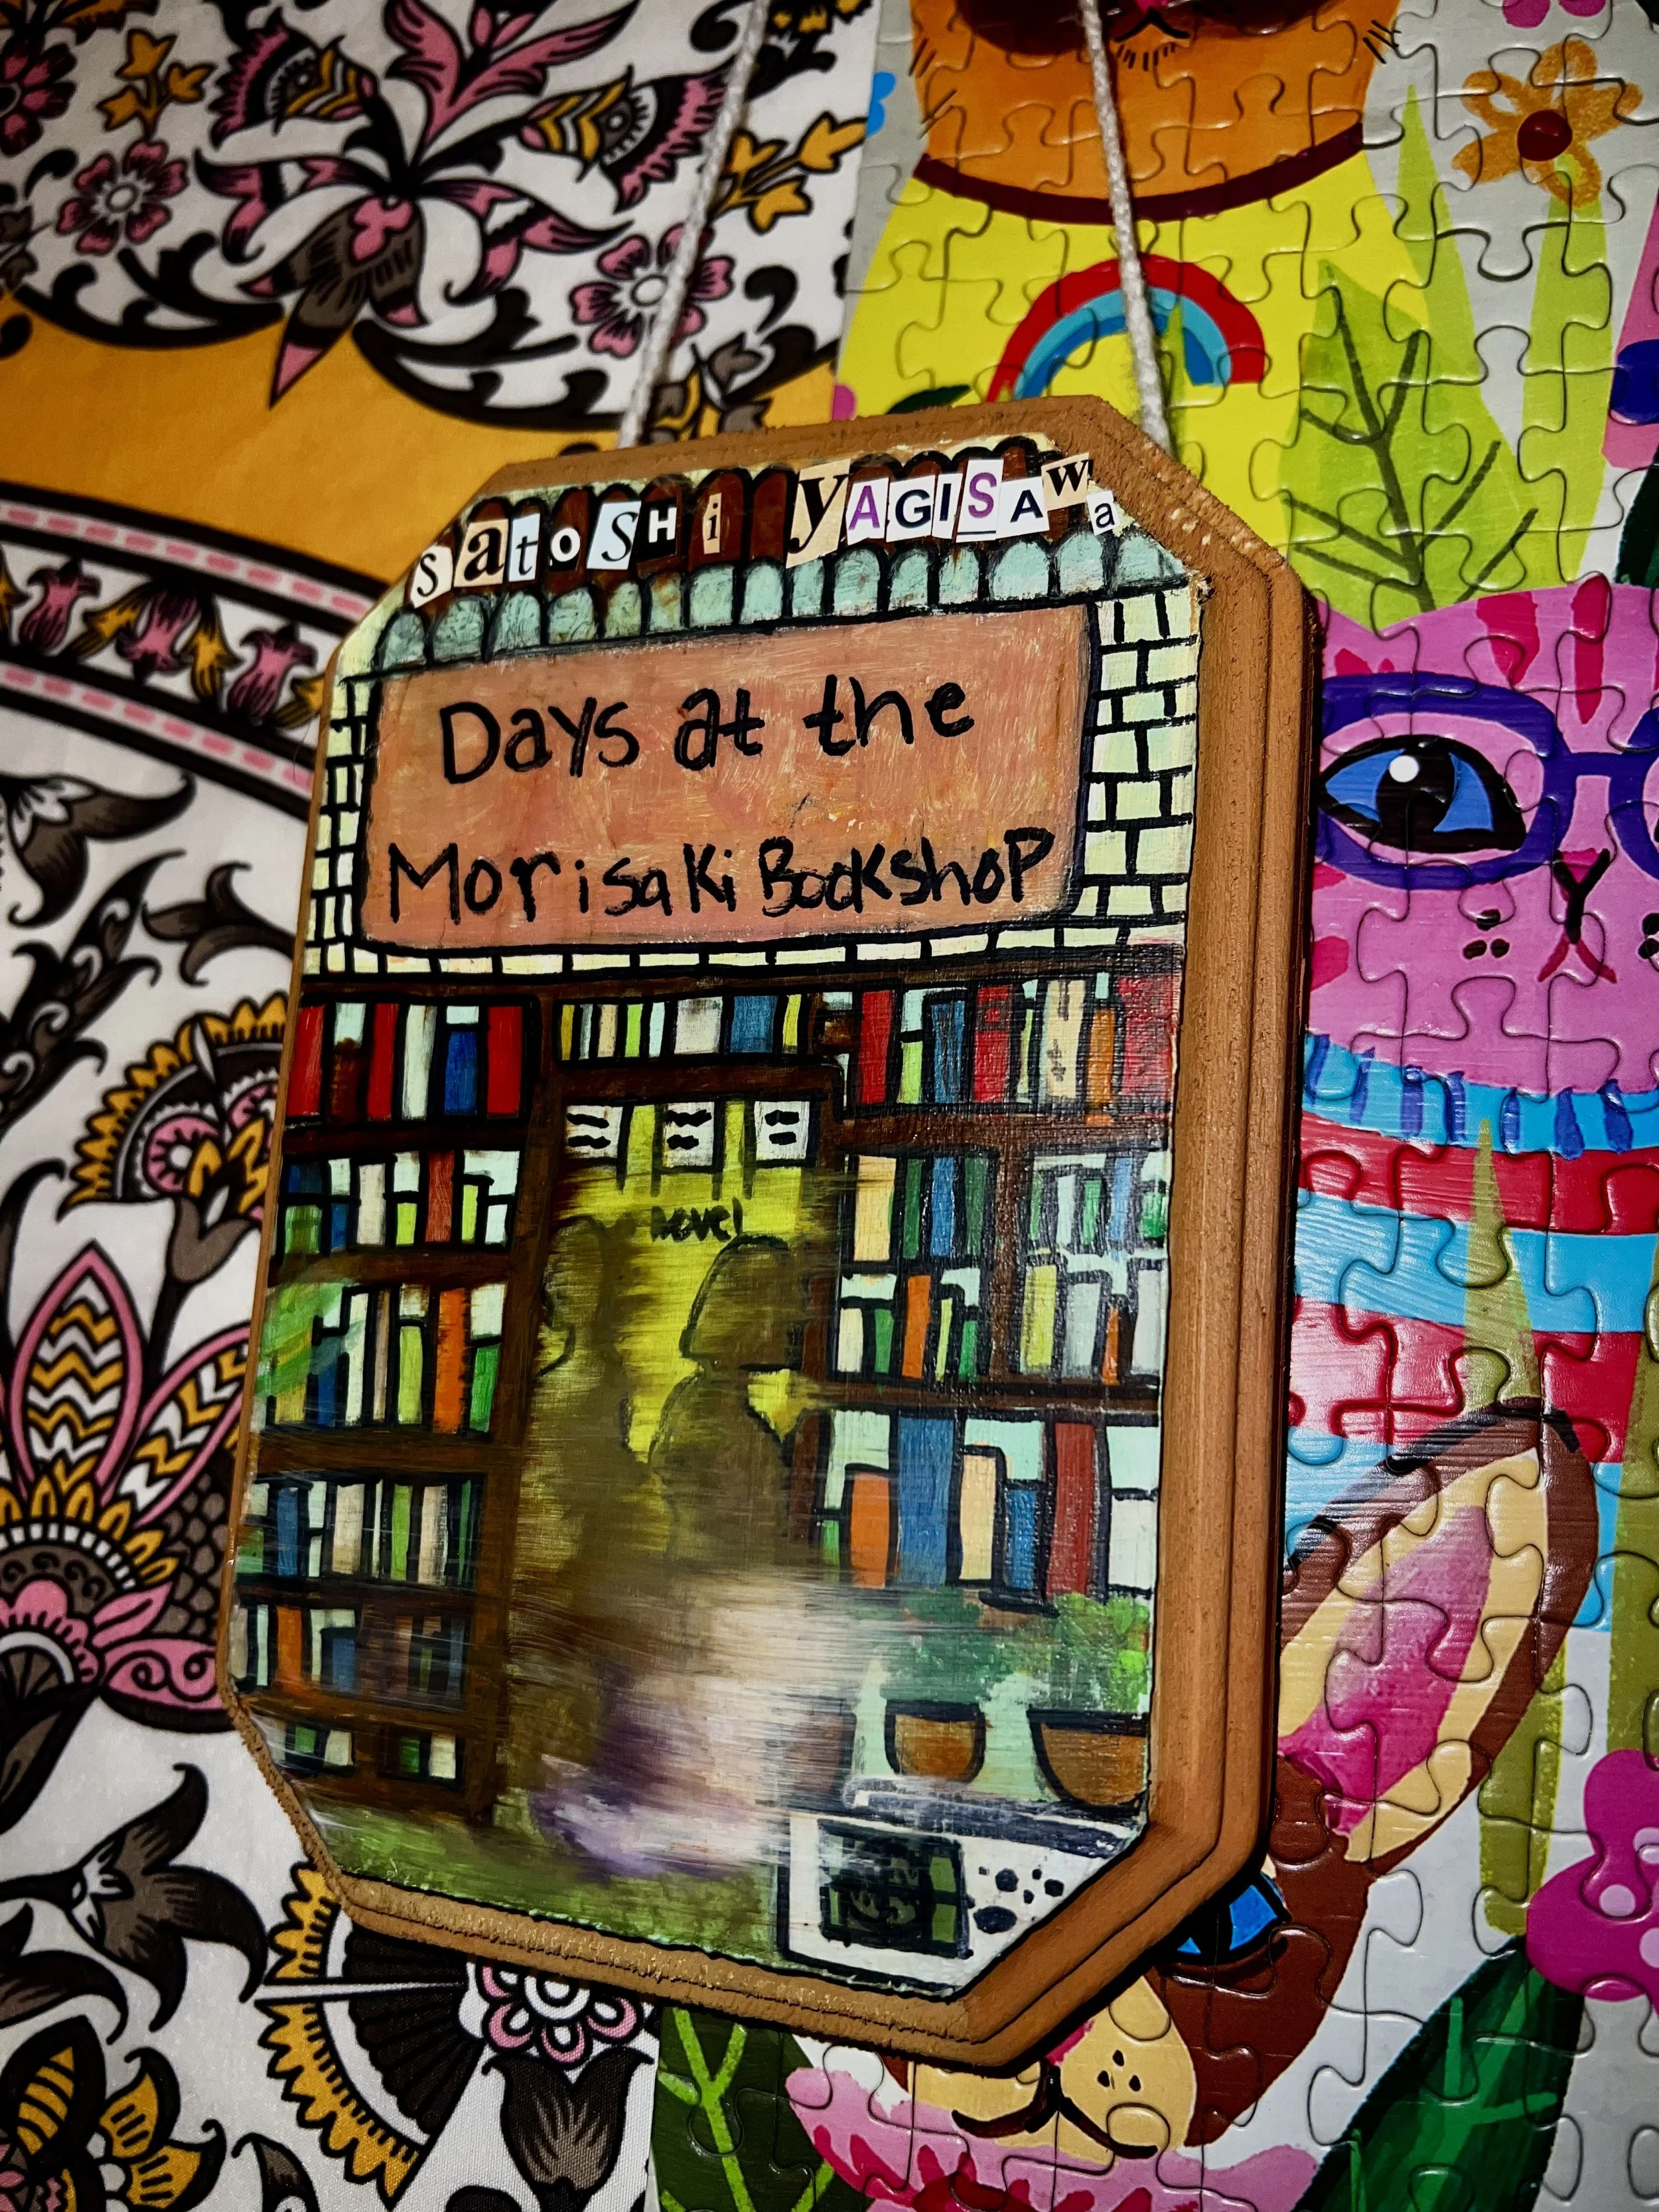 satoSHi yAGISAwa
Days at the
Morisaki Bookshop
novel